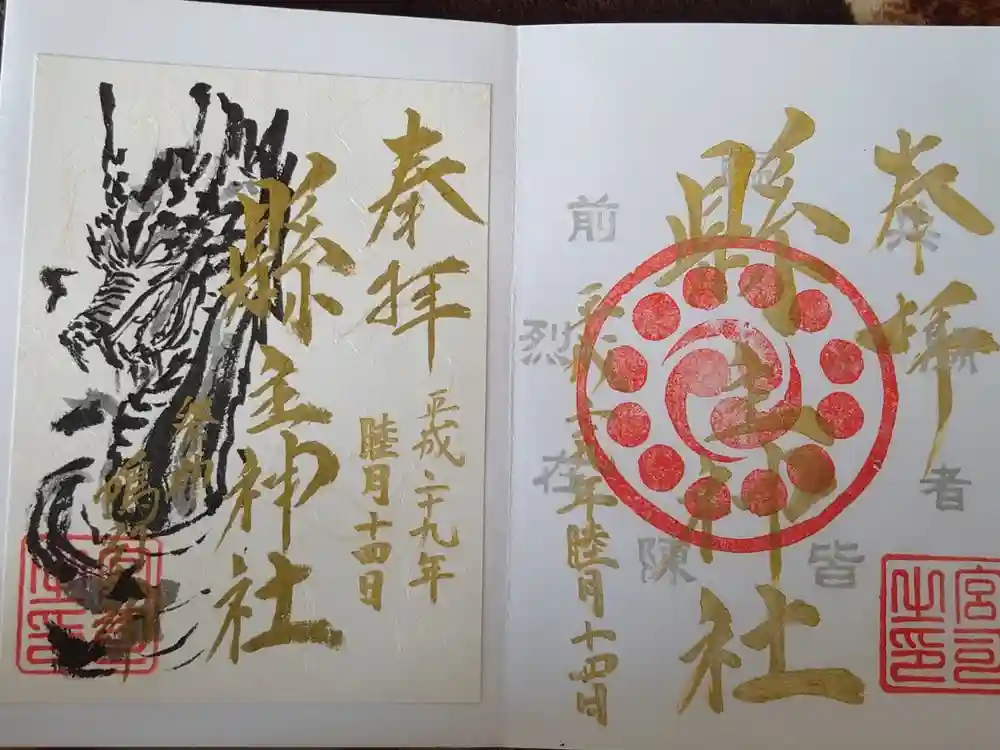 奉拝
平成二十九年
睦月十四日
縣主神社
奉拝
縣主神社
平成二十九年睦月十四日
臨
兵
闘
者
皆
陳
烈
在
前
宮司
之印